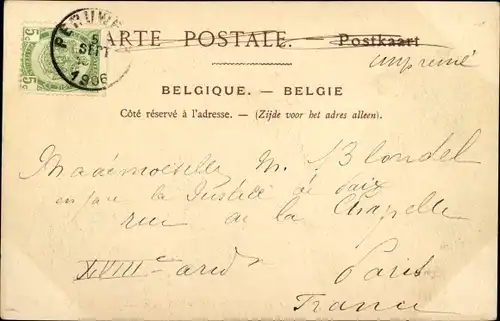 5c 5c
PERUWE
5
SEPT
1906
CARTE POSTALE. — Postkaart
imprimé
BELGIQUE. — BELGIE
Côté réservé à l'adresse. — (Zijde voor het adres alleen).
Mademoiselle M. Blondel
en face la Justice de Paix
rue de la Chapelle
XVIII e arrd
Paris
France